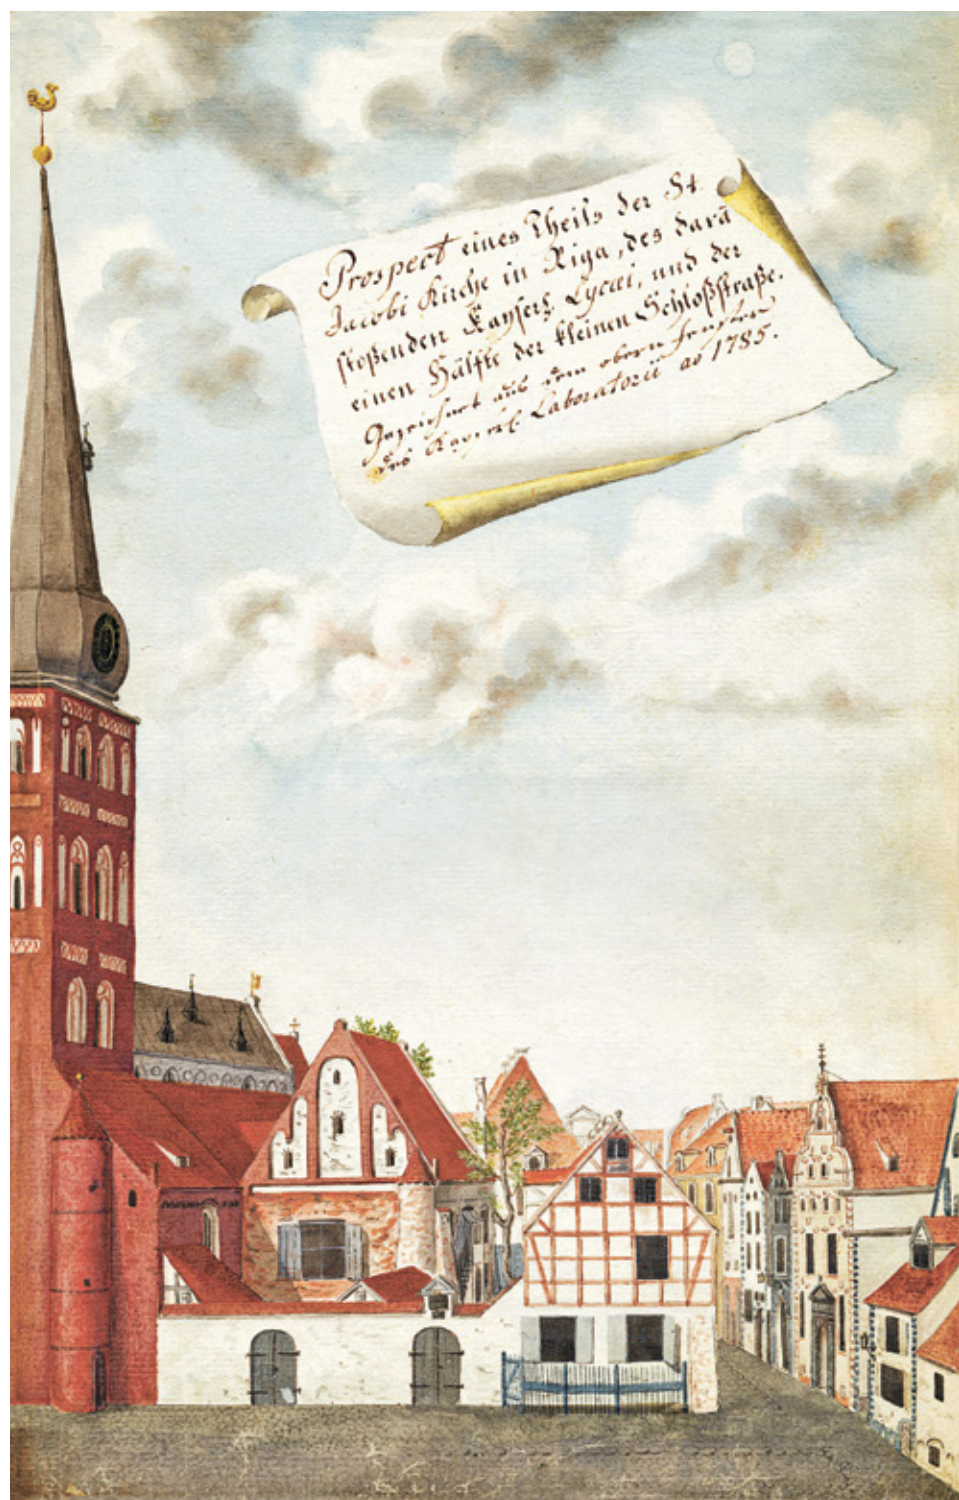 Prospect eines Theils der St.
Jacobi Kirche in Riga, des darā
stoßenden Kayserl. Lycæi, und der
einen Hälfte der kleinen Schloßstraße.
Gezeichnet aus dem obern Fenster
des Kayserl. Laboratorii aō 1785.